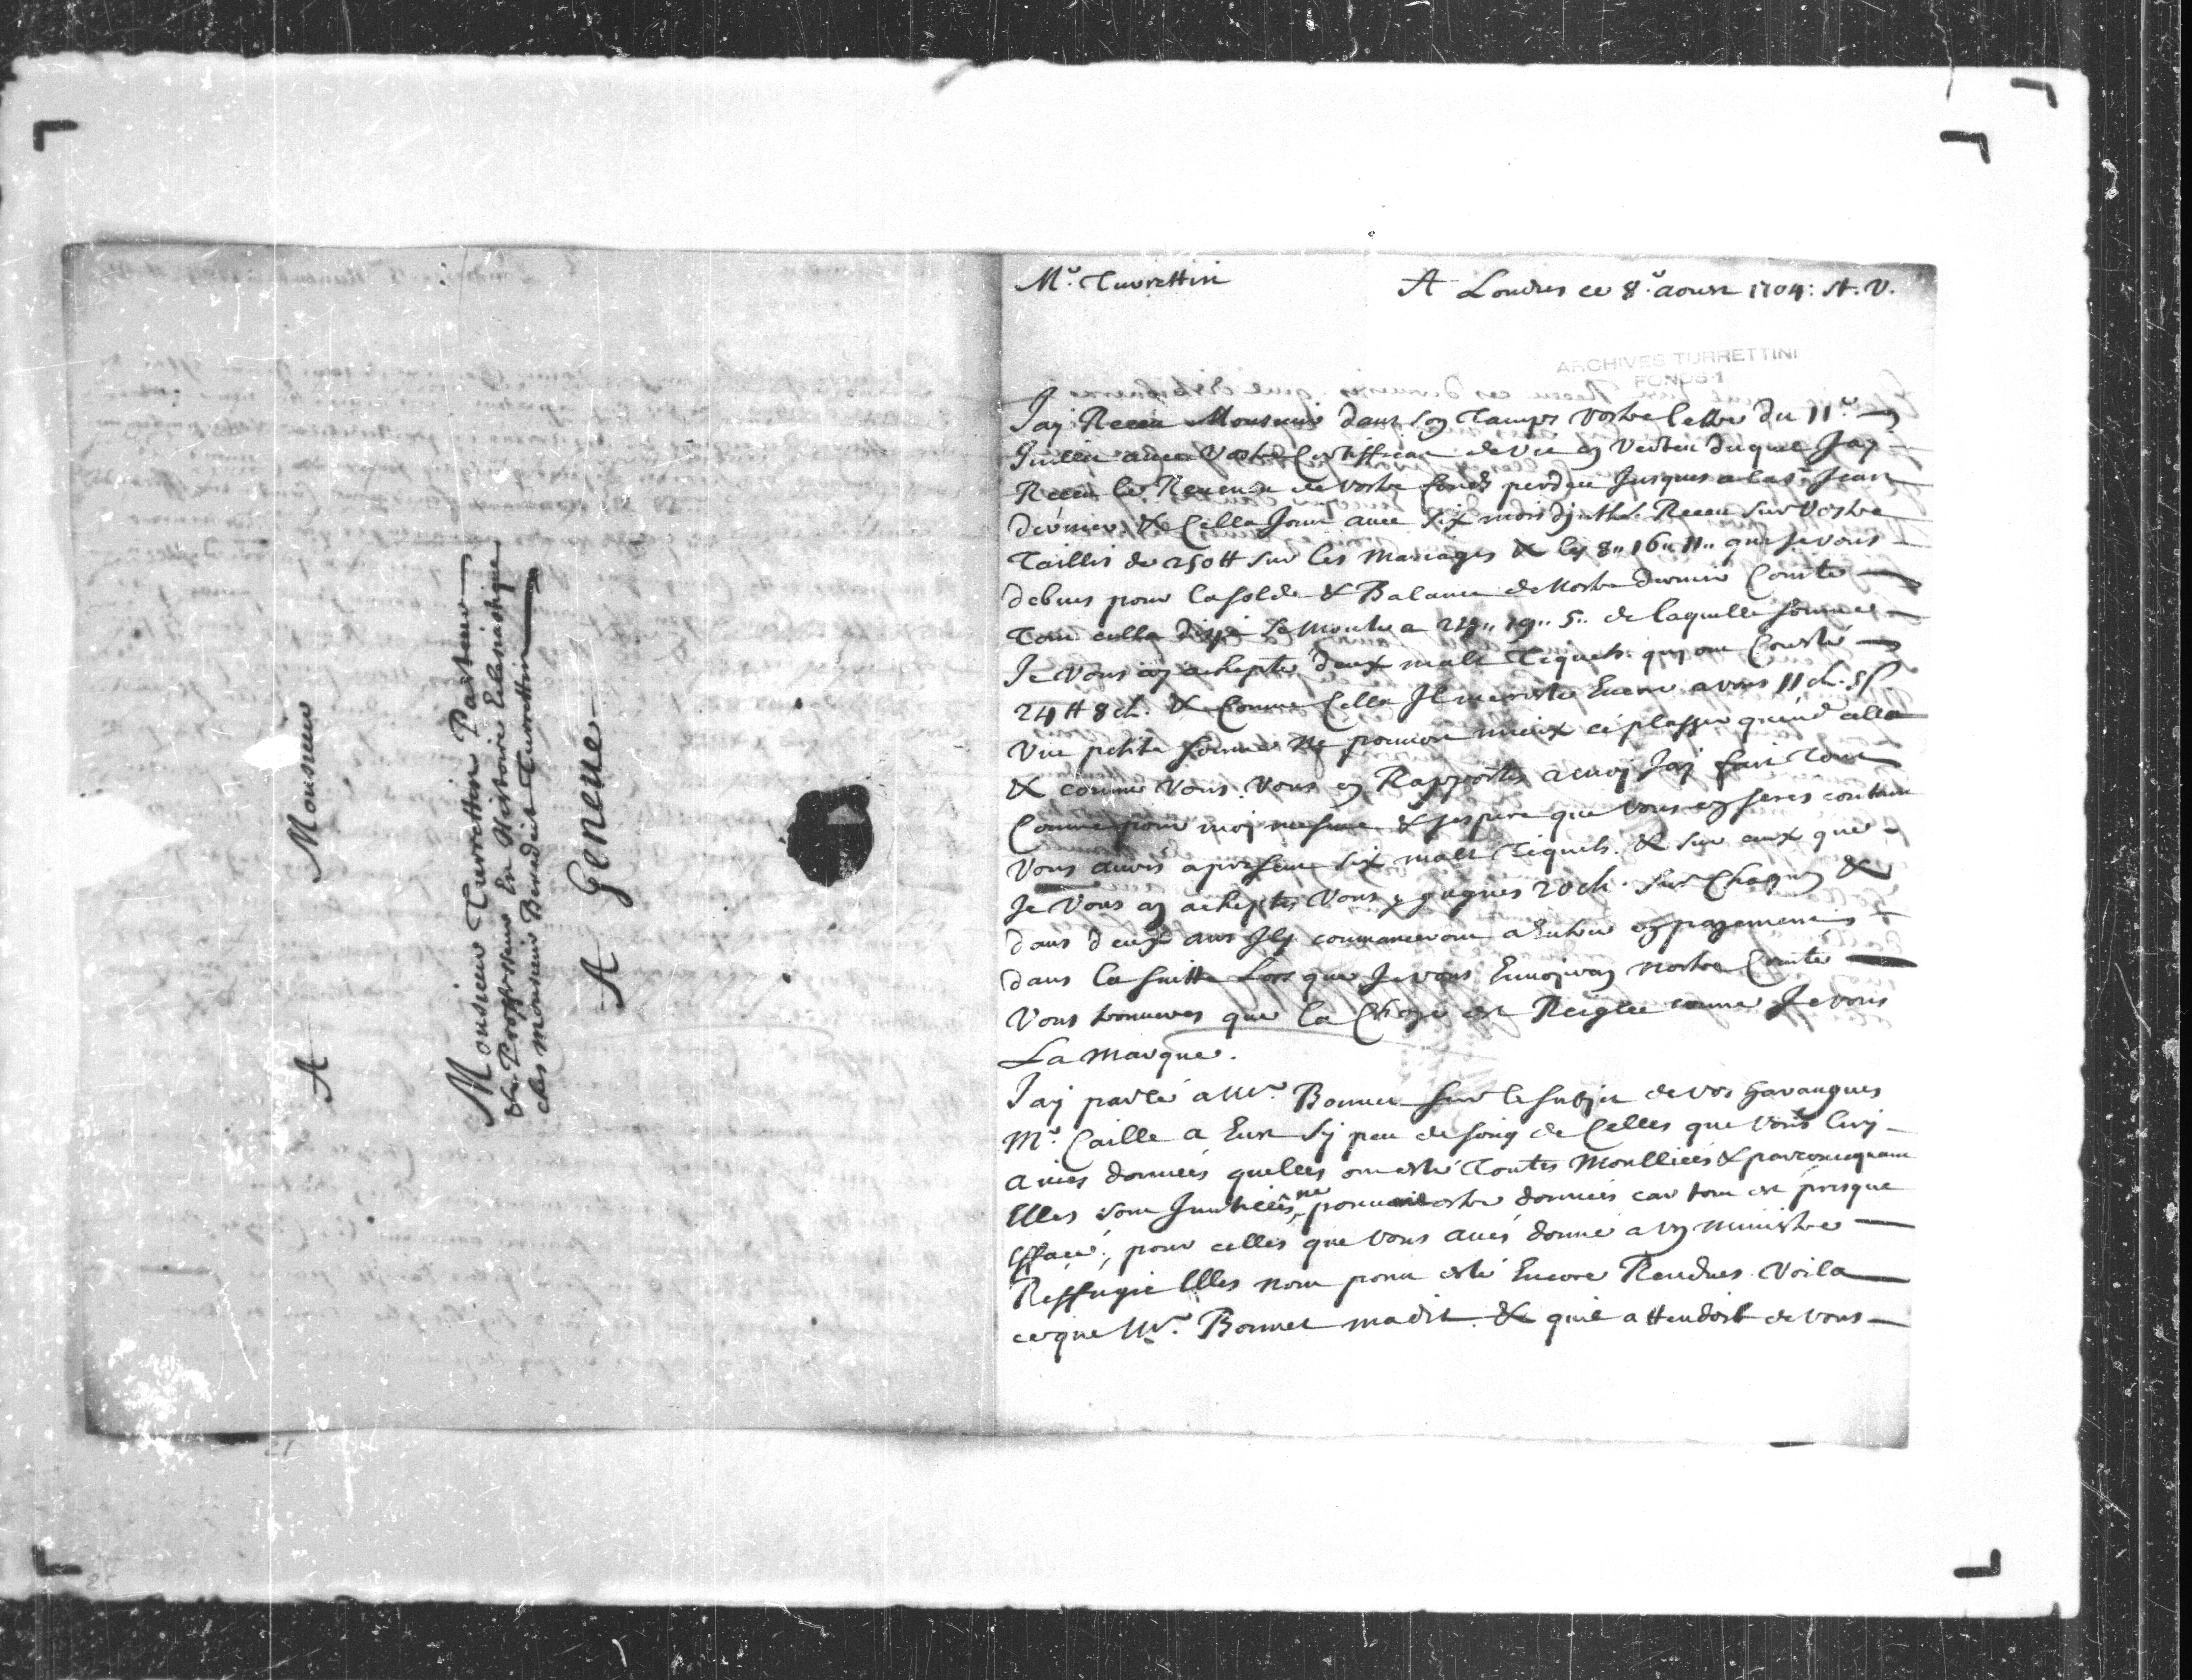 A Monsieur
Monsieur Turrettin Pasteur
& Proffesseur En Histoire Eclesiastique
ches monsieur Benedict Turrettin
A Geneue
Mr. Turrettin A Londres ce 8e. aoust 1704: St. V.
ARCHIVES TURRETTINI
FONDS 1
Jay Receu Monsieur dans son Tamps vostre lettre du 11e.
Juillet auec Vostre Certifficat de Vie en Verteu duquel Jay
Receu le Reuenu de vostre fonds perdeu Jusques a la St Jean
dernier, & Cella Joint auec six mois dintht. Receu sur Vostre
Taillis de 250 tt sur les Mariages & les 8,, 16,, 11,, que je vous
debuois pour la solde & Balance de Nostre dernier Comte
Tout cella se monte a 19,, 5,, de laquelle somme
Je Vous ay achepté deux malt Tiquets. quy ont Cousté
24 tt 8 ch. & Comme Cella Il me reste Encore a vous 11 ch. 5
Vne petite somme Ne pouuoit mieux estre
& comme Vous. Vous en Rapportés a moy Jay fait Tout
Comme pour moy mesme & jespere que Vous en serés content
Vous aurés apresent six malt Tiquets. & sur ceux que
Je Vous ay acheptés Vous y gagnés 20 ch. sur Chaqun &
dans deux ans Ils commanceront a Entrer en payement
dans la suitte Lors que Je vous Enuoyeray nostre Comte
Vous trouueres que la Chose est Reiglée comme Je vous
La marque.
Jay parlé a Mr. Bonnet sur le subjet de vos Harangues
Mr. Caille a Eust sy peu de soing de Celles que Vous luy
auiés données quelles ont esté Toutes Moulliées & par consequant
Elles sont Inutiles, ne pouuant estre données car tout est presque
Effacé; pour celles que Vous aués donné a vn ministre
Reffugié Elles nont point esté Encore Randues. Voila
ce que Mr. Bonnet ma dit. & quil attendoit de vous